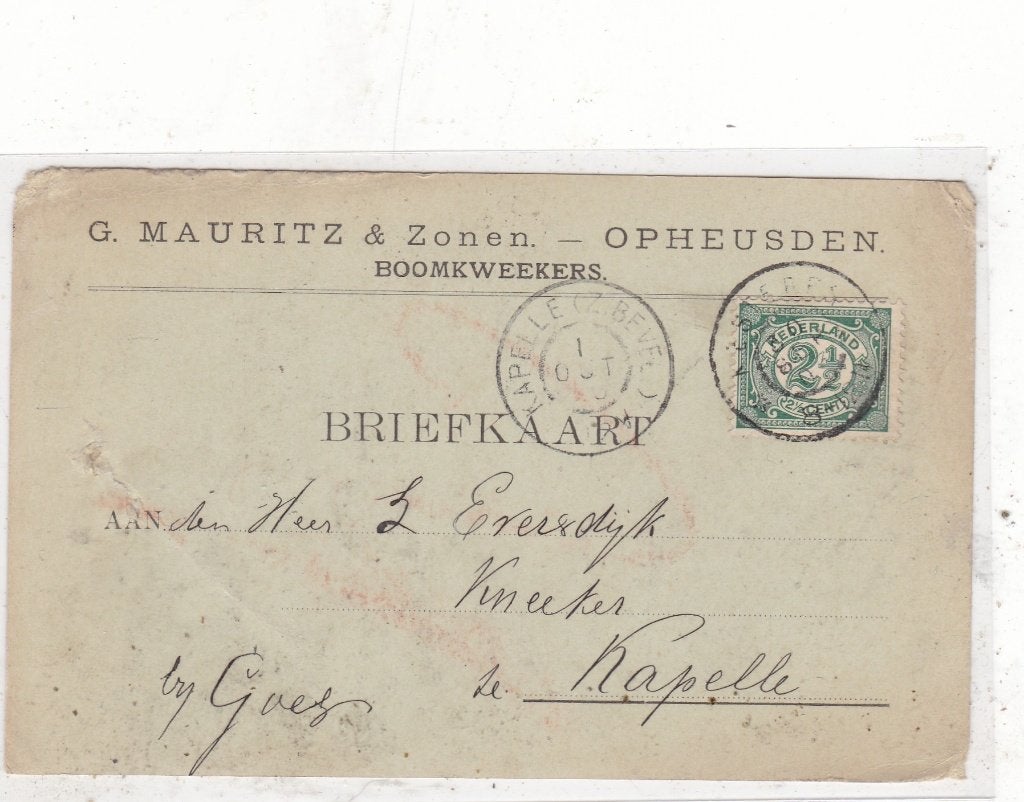 G. MAURITZ & Zonen. — OPHEUSDEN.
BOOMKWEEKERS.
KAPELLE (Z. BEVEL.)
1
OCT
NEDERLAND
2½
2½ CENT
BRIEFKAART
AAN den Heer L Eversdijk
Kneeker
by Goes te Kapelle